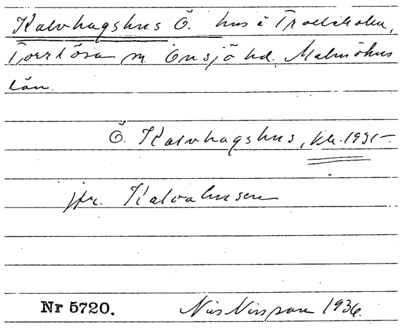 Kalvhagshus Ö. hus i Trolleholm,
Torrlösa sn Onsjö hd. Malmöhus
län.
Ö. Kalvhagshus, Kk. 1931-
jfr. Kalvahusen
Nr 5720. Nils Nilsson 1936.